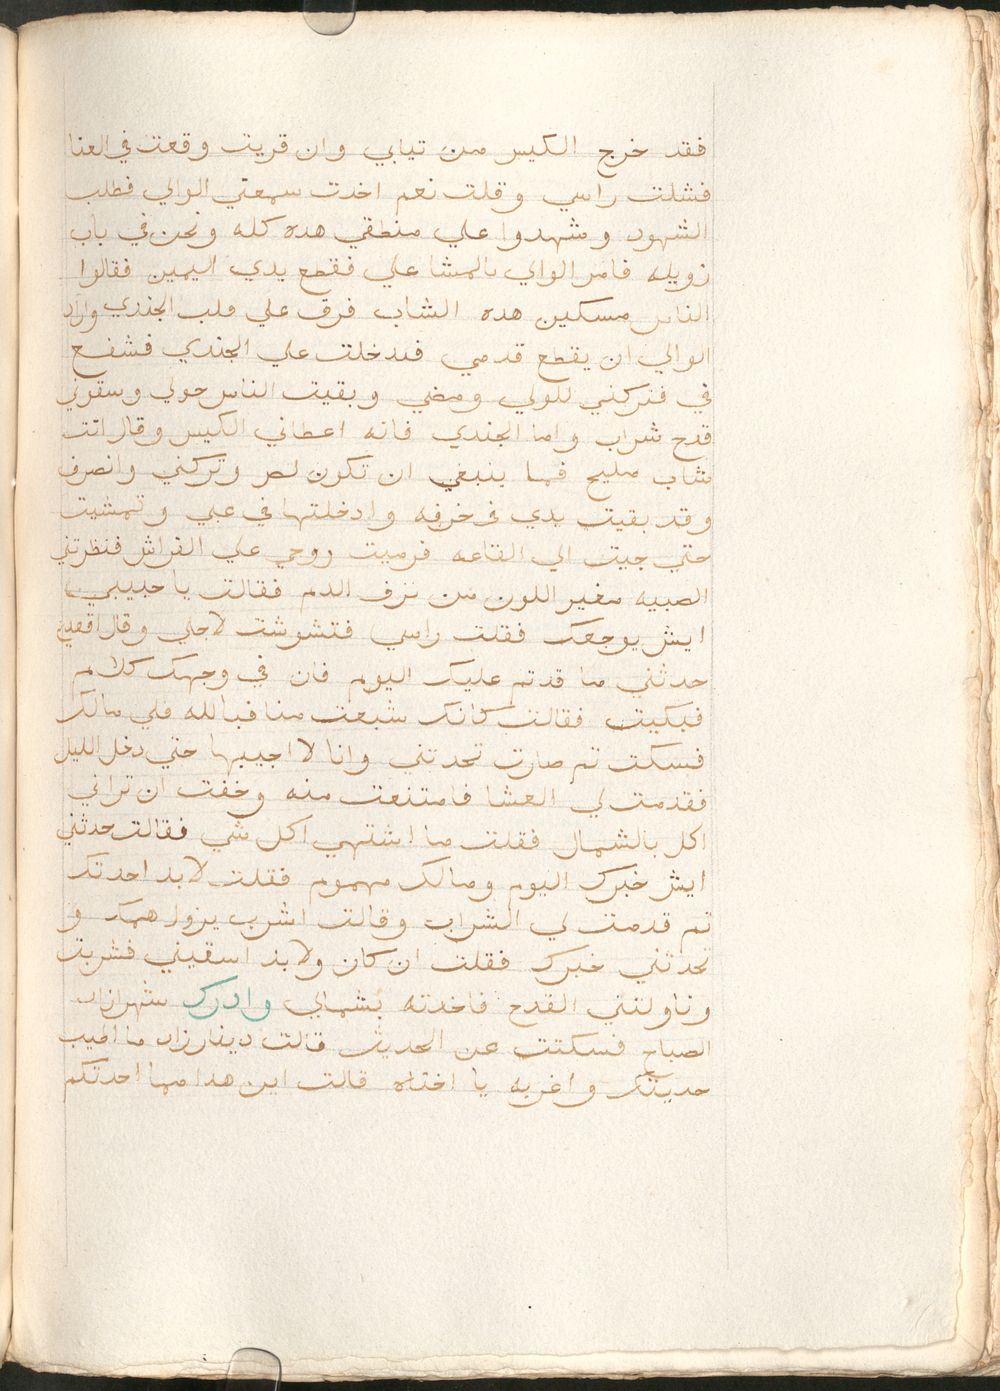 فقد خرج الكيس من تيابي وان قريت وقعت في العنا
فشلت راسي وقلت نعم اخدت سمعتي الوالي فطلب
الشهود وشهدوا علي منطقي هده كله ونحن في باب
زويله فامر الوالي بالمشاعلي فقطع يدي اليمين فقالوا
الناس مسكين هده الشاب فرق علي قلب الجندي واراد
الوالي ان يقطع قدمي فندخلت علي الجندي فشفع
في فتركني للولي ومضي وبقيت الناس حولي وسقوني
قدح شراب واما الجندي فانه اعطاني الكيس وقال انت
شاب مليح فما ينبغي ان تكون لص وتركني وانصرف
وقد بقيت يدي في خرقه وادخلتها في عبي وتمشيت
حتي جيت الي القاعه فرميت روحي علي الفراش فنظرتني
الصبيه مغير اللون من نزف الدم فقالت يا حبيبي
ايش يوجعك فقلت راسي فتشوشت لاجلي وقال اقعد
حدثني ما قد تم عليك اليوم فان في وجهك كلام
فبكيت فقالت كانك شبعت منا فبالله قلي مالك
فسكت تم صارت تحدتني وانا لا اجيبها حتي دخل الليل
فقدمت لي العشا فامتنعت منه وخفت ان تراني
اكل بالشمال فقلت ما اشتهي اكل شي فقالت حدثني
ايش خبرك اليوم ومالك مهموم فقلت لابد احدتك
تم قدمت لي الشراب وقالت اشرب يزول همك و
تحدثني خبرك فقلت ان كان ولابد اسقيني فشربت
وناولتني القدح فاخدته بشمالي وادرك شهرازاد
الصباح فسكتت عن الحديث قالت دينارزاد ما اطيب
حديتك واغربه يا اختاه قالت اين هدا مما احدتكم